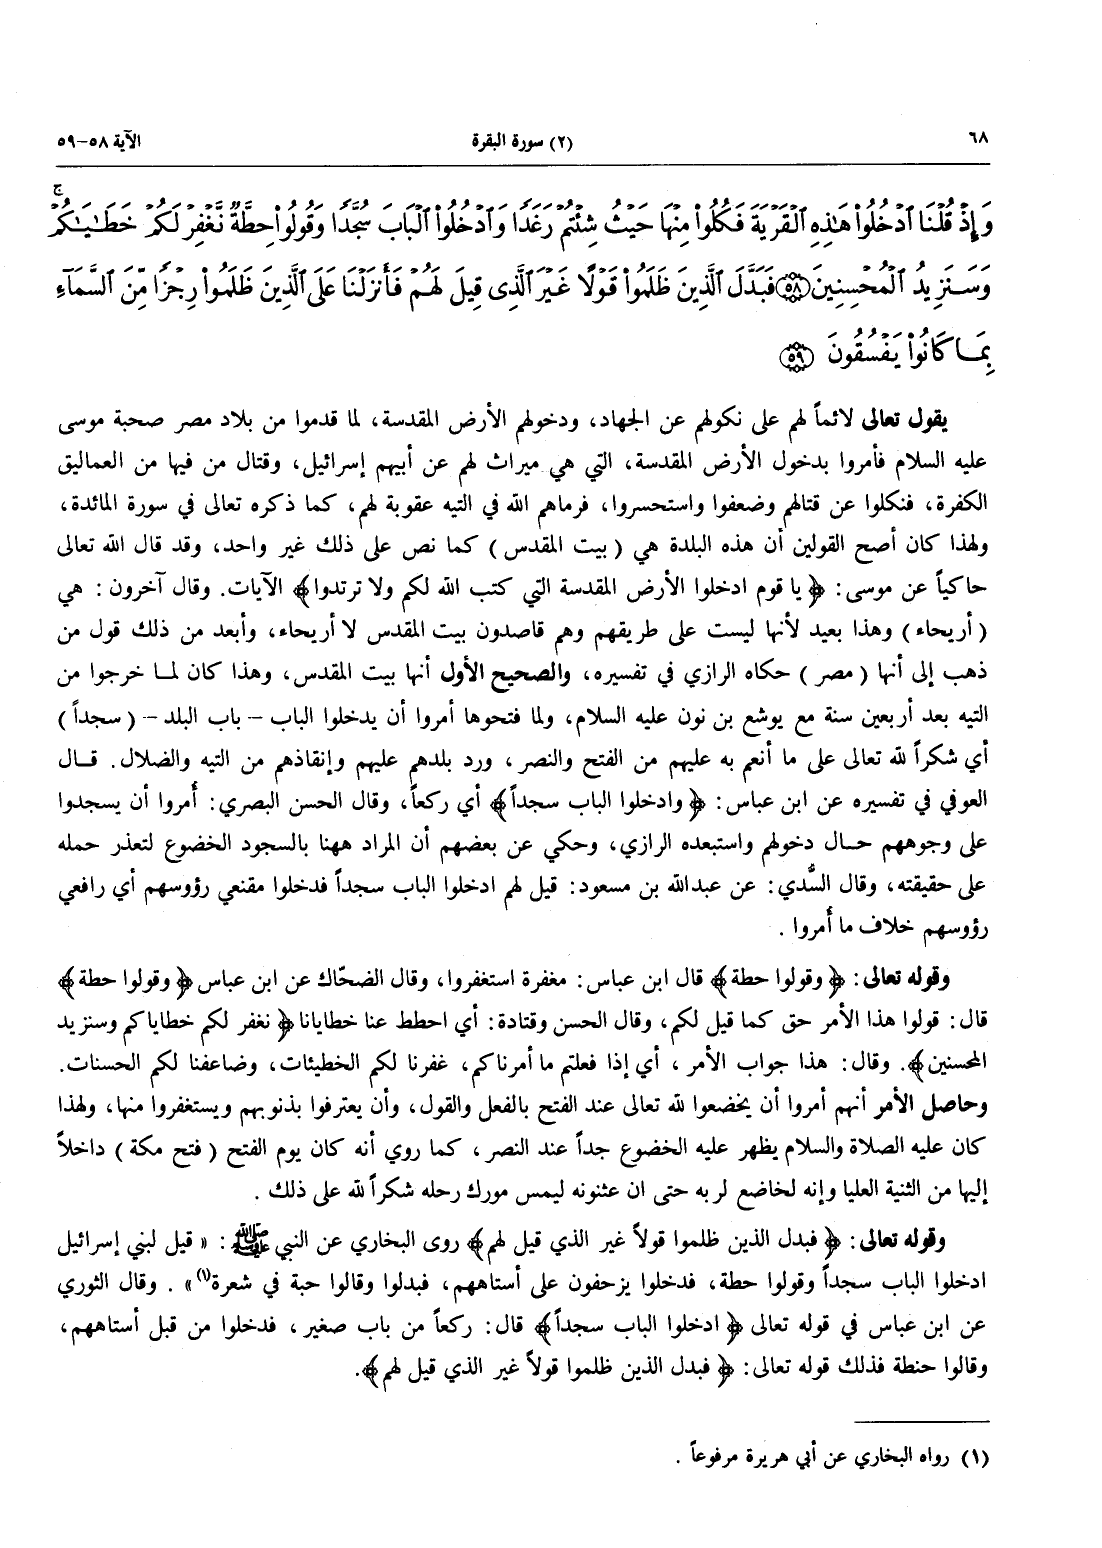 ٦٨ (٢) سورة البقرة الآية ٥٨-٥٩
وَإِذْ قُلْنَا ٱدْخُلُوا۟ هَـٰذِهِ ٱلْقَرْيَةَ فَكُلُوا۟ مِنْهَا حَيْثُ شِئْتُمْ رَغَدًا وَٱدْخُلُوا۟ ٱلْبَابَ سُجَّدًا وَقُولُوا۟ حِطَّةٌ نَّغْفِرْ لَكُمْ خَطَـٰيَـٰكُمْ ۚ
وَسَنَزِيدُ ٱلْمُحْسِنِينَ ﴿٥٨﴾ فَبَدَّلَ ٱلَّذِينَ ظَلَمُوا۟ قَوْلًا غَيْرَ ٱلَّذِى قِيلَ لَهُمْ فَأَنزَلْنَا عَلَى ٱلَّذِينَ ظَلَمُوا۟ رِجْزًا مِّنَ ٱلسَّمَآءِ
بِمَا كَانُوا۟ يَفْسُقُونَ ﴿٥٩﴾
يقول تعالى لائماً لهم على نكولهم عن الجهاد، ودخولهم الأرض المقدسة، لما قدموا من بلاد مصر صحبة موسى
عليه السلام فأمروا بدخول الأرض المقدسة، التي هي ميراث لهم عن أبيهم إسرائيل، وقتال من فيها من العماليق
الكفرة، فنكلوا عن قتالهم وضعفوا واستحسروا، فرماهم الله في التيه عقوبة لهم، كما ذكره تعالى في سورة المائدة،
ولهذا كان أصح القولين أن هذه البلدة هي ( بيت المقدس ) كما نص على ذلك غير واحد، وقد قال الله تعالى
حاكياً عن موسى: ﴿ يا قوم ادخلوا الأرض المقدسة التي كتب الله لكم ولا ترتدوا﴾ الآيات. وقال آخرون : هي
( أريحاء ) وهذا بعيد لأنها ليست على طريقهم وهم قاصدون بيت المقدس لا أريحاء، وأبعد من ذلك قول من
ذهب إلى أنها ( مصر ) حكاه الرازي في تفسيره، والصحيح الأول أنها بيت المقدس، وهذا كان لمـا خرجوا من
التيه بعد أربعين سنة مع يوشع بن نون عليه السلام، ولما فتحوها أمروا أن يدخلوا الباب - باب البلد - ( سجداً )
أي شكراً لله تعالى على ما أنعم به عليهم من الفتح والنصر، ورد بلدهم عليهم وإنقاذهم من التيه والضلال. قـال
العوفي في تفسيره عن ابن عباس: ﴿ وادخلوا الباب سجداً﴾ أي ركعاً، وقال الحسن البصري: أُمروا أن يسجدوا
على وجوههم حـال دخولهم واستبعده الرازي، وحكي عن بعضهم أن المراد ههنا بالسجود الخضوع لتعذر حمله
على حقيقته، وقال السُّدي: عن عبدالله بن مسعود: قيل لهم ادخلوا الباب سجداً فدخلوا مقنعي رؤوسهم أي رافعي
رؤوسهم خلاف ما أُمروا .
وقوله تعالى: ﴿ وقولوا حطة﴾ قال ابن عباس: مغفرة استغفروا، وقال الضحّاك عن ابن عباس ﴿ وقولوا حطة﴾
قال: قولوا هذا الأمر حق كما قيل لكم، وقال الحسن وقتادة: أي احطط عنا خطايانا ﴿ نغفر لكم خطاياكم وسنزيد
المحسنين﴾. وقال: هذا جواب الأمر ، أي إذا فعلتم ما أمرناكم، غفرنا لكم الخطيئات، وضاعفنا لكم الحسنات.
وحاصل الأمر أنهم أمروا أن يخضعوا لله تعالى عند الفتح بالفعل والقول، وأن يعترفوا بذنوبهم ويستغفروا منها، ولهذا
كان عليه الصلاة والسلام يظهر عليه الخضوع جداً عند النصر، كما روي أنه كان يوم الفتح ( فتح مكة ) داخلاً
إليها من الثنية العليا وإنه لخاضع لربه حتى ان عثنونه ليمس مورك رحله شكراً لله على ذلك .
وقوله تعالى: ﴿ فبدل الذين ظلموا قولاً غير الذي قيل لهم﴾ روى البخاري عن النبي ﷺ : « قيل لبني إسرائيل
ادخلوا الباب سجداً وقولوا حطة، فدخلوا يزحفون على أستاههم، فبدلوا وقالوا حبة في شعرة(١)» . وقال الثوري
عن ابن عباس في قوله تعالى ﴿ ادخلوا الباب سجداً﴾ قال: ركعاً من باب صغير، فدخلوا من قبل أستاههم،
وقالوا حنطة فذلك قوله تعالى: ﴿ فبدل الذين ظلموا قولاً غير الذي قيل لهم﴾.
(١) رواه البخاري عن أبي هريرة مرفوعاً .